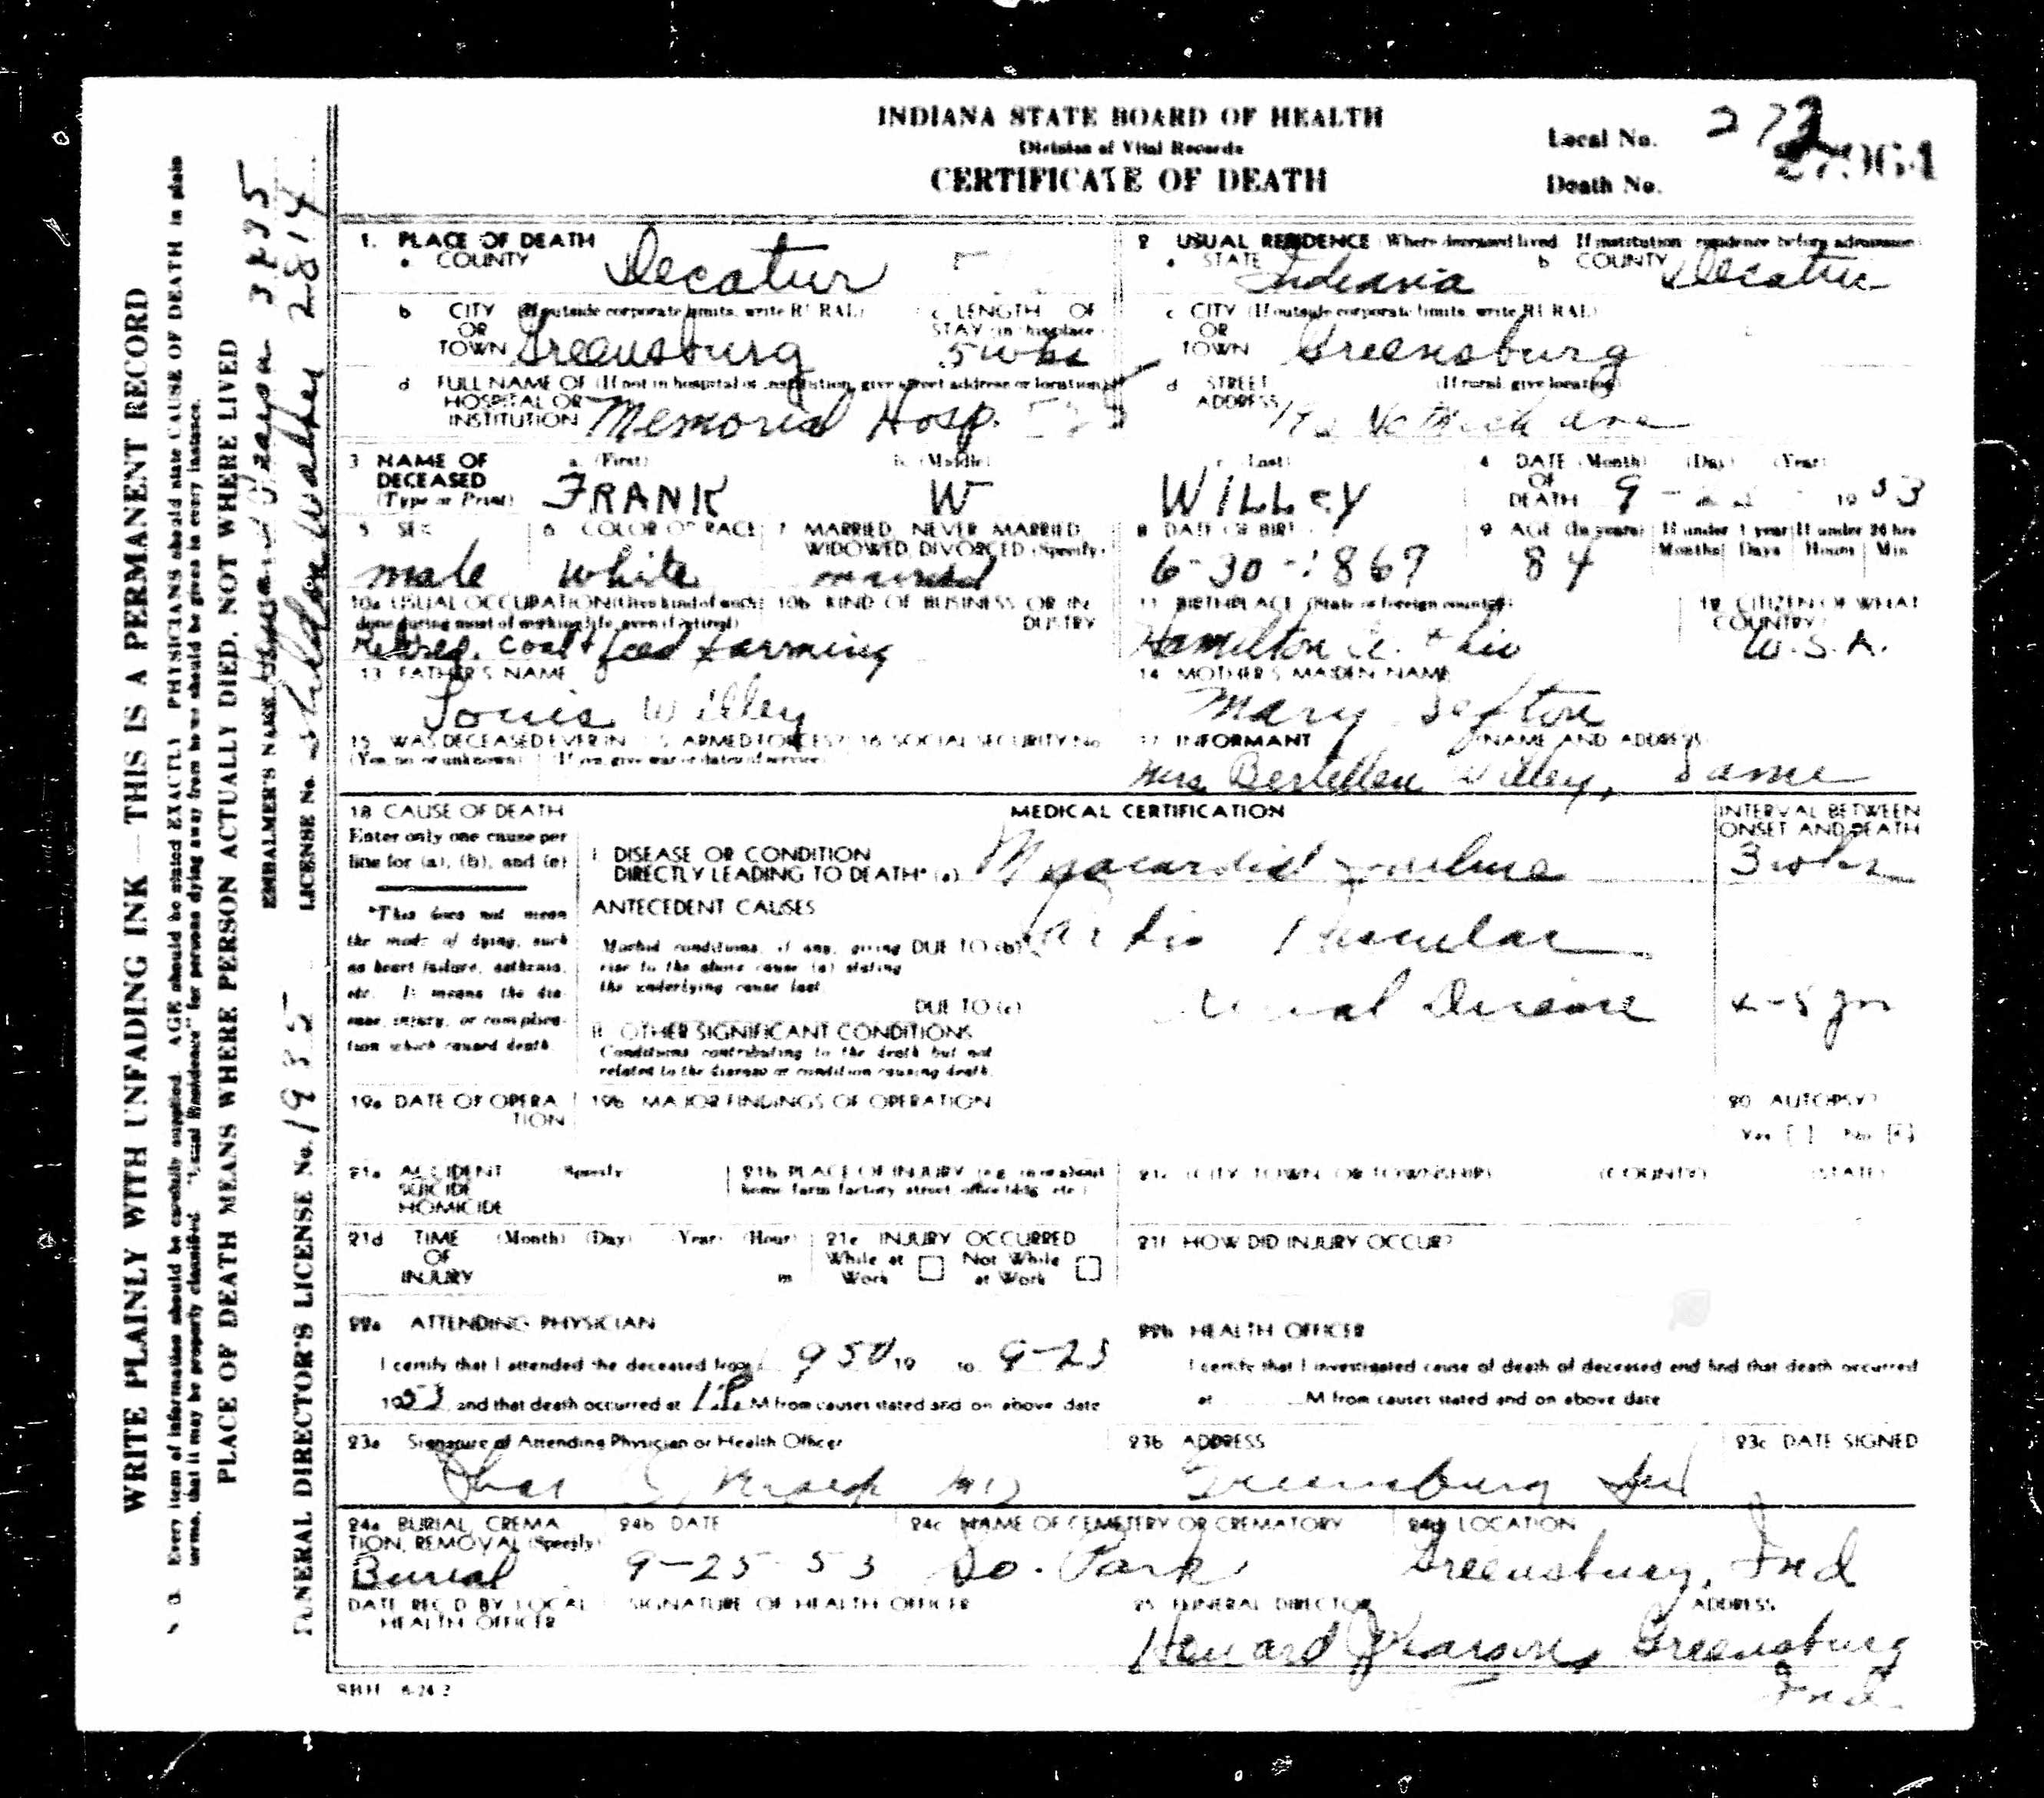 INDIANA STATE BOARD OF HEALTH
Division of Vital Records
CERTIFICATE OF DEATH
Local No. 273
Death No.
WRITE PLAINLY WITH UNFADING INK — THIS IS A PERMANENT RECORD
N. B. Every item of information should be carefully supplied. AGE should be stated EXACTLY. PHYSICIANS should state CAUSE OF DEATH in plain
terms, that it may be properly classified. "Usual Residence" for persons dying away from home should be given in every instance.
PLACE OF DEATH MEANS WHERE PERSON ACTUALLY DIED, NOT WHERE LIVED
EMBALMER'S NAME 3295
FUNERAL DIRECTOR'S LICENSE No. 1985 LICENSE No. Sheldon Walker 2814
1. PLACE OF DEATH
a COUNTY Decatur
2 USUAL RESIDENCE (Where deceased lived. If institution residence before admission)
a STATE Indiana b COUNTY Decatur
b CITY (If outside corporate limits, write RURAL)
OR
TOWN Greensburg
c LENGTH OF
STAY (in this place)
5 wks
c CITY (If outside corporate limits, write RURAL)
OR
TOWN Greensburg
d FULL NAME OF (If not in hospital or institution, give street address or location)
HOSPITAL OR
INSTITUTION Memorial Hosp.
d STREET (If rural, give location)
ADDRESS Mich ave
3 NAME OF
DECEASED
(Type or Print)
a. (First) FRANK
b. (Middle) W
c. (Last) WILLEY
4 DATE (Month) (Day) (Year)
OF
DEATH 9 - - 1953
5 SEX
male
6 COLOR OR RACE
white
7 MARRIED, NEVER MARRIED,
WIDOWED, DIVORCED (Specify)
married
8 DATE OF BIRTH
6-30-1869
9 AGE (In years)
84
If under 1 year If under 24 hrs
Months Days Hours Min
10a USUAL OCCUPATION (Give kind of work
done during most of working life, even if retired)
Retired, coal & feed
10b KIND OF BUSINESS OR IN
DUSTRY
farming
11 BIRTHPLACE (State or foreign country)
Hamilton Ohio
12 CITIZEN OF WHAT
COUNTRY?
U.S.A.
13 FATHER'S NAME
Louis Willey
14 MOTHER'S MAIDEN NAME
Mary Sefton
15 WAS DECEASED EVER IN U. S. ARMED FORCES?
(Yes, no or unknown) (If yes, give war or dates of service)
16 SOCIAL SECURITY No
17 INFORMANT (NAME AND ADDRESS)
Mrs. Willey, Same
18 CAUSE OF DEATH
Enter only one cause per
line for (a), (b), and (c)
*This does not mean
the mode of dying, such
as heart failure, asthenia,
etc. It means the dis-
ease, injury, or complica-
tion which caused death.
MEDICAL CERTIFICATION
INTERVAL BETWEEN
ONSET AND DEATH
I DISEASE OR CONDITION
DIRECTLY LEADING TO DEATH* (a) Myocardial Failure 3 wks
ANTECEDENT CAUSES
Morbid conditions, if any, giving
rise to the above cause (a) stating
the underlying cause last.
DUE TO (b) Cardio Vascular
DUE TO (c) Renal Disease 4-5 yrs
II OTHER SIGNIFICANT CONDITIONS
Conditions contributing to the death but not
related to the disease or condition causing death.
19a DATE OF OPERA
TION
19b MAJOR FINDINGS OF OPERATION
20 AUTOPSY?
Yes [ ] No [x]
21a ACCIDENT (Specify)
SUICIDE
HOMICIDE
21b PLACE OF INJURY (e.g. in or about
home, farm, factory, street, office bldg, etc.)
21c (CITY, TOWN, OR TOWNSHIP) (COUNTY) (STATE)
21d TIME (Month) (Day) (Year) (Hour)
OF
INJURY m
21e INJURY OCCURRED
While at Not While
Work at Work
21f HOW DID INJURY OCCUR?
22a ATTENDING PHYSICIAN
I certify that I attended the deceased from 1950 19 to 9-23
1953 and that death occurred at 1 P. M from causes stated and on above date
22b HEALTH OFFICER
I certify that I investigated cause of death of deceased and find that death occurred
at M from causes stated and on above date
23a Signature of Attending Physician or Health Officer
MD
23b ADDRESS
Greensburg Ind
23c DATE SIGNED
24a BURIAL, CREMA
TION, REMOVAL (Specify)
Burial
24b DATE
9-25-53
24c NAME OF CEMETERY OR CREMATORY
So. Park
24d LOCATION
Greensburg, Ind
DATE REC'D BY LOCAL
HEALTH OFFICER
SIGNATURE OF HEALTH OFFICER
25 FUNERAL DIRECTOR ADDRESS
Greensburg
Ind.
SBH 6-24-2